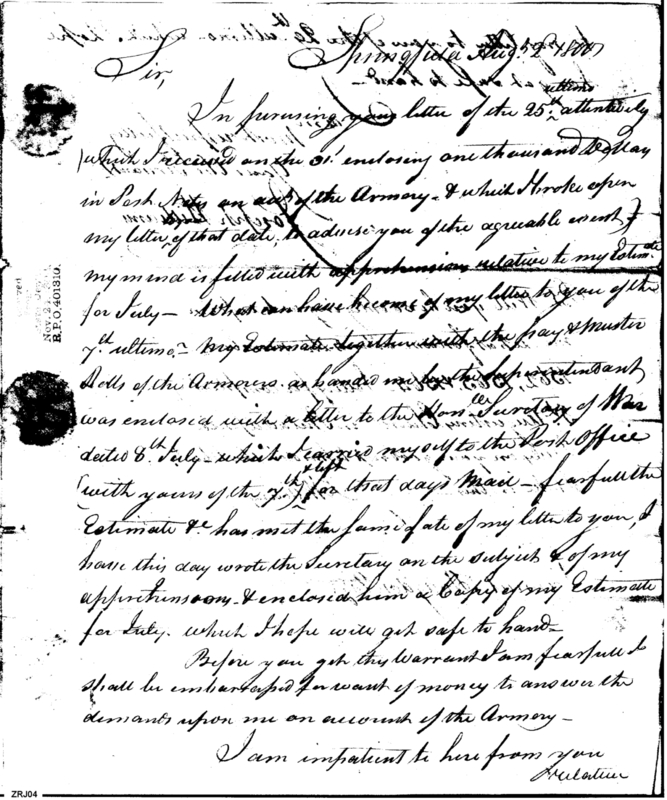 Springfield Aug.
Sir,
ultimo
In perusing your letter of the 25th attentively
(which I received on the 31st enclosing one thousand Dollars
in Post Notes on acct of the Armory - & which I broke open
my letter of that date, to advise you of the agreeable event)
my mind is filled with apprehensions relative to my Estimate
for July - What can have become of my letter to you of the
7th ultimo - My Estimate together with the pay & Muster
Rolls of the Armorers as handed me by the Superintendant
was enclosed with a letter to the Honble Secretary of War
dated 8th July - which I carried myself to the Post Office
& left
(with yours of the 7th) for that days Mail - fearfull the
Estimate &c has met the same fate of my letter to you, I
have this day wrote the Secretary on the subject & of my
apprehensions - & enclosed him a Copy of my Estimate
for July. which I hope will get safe to hand -
Before you get this Warrant I am fearfull I
shall be embarrassed for want of money to answer the
demands upon me on account of the Armory -
I am impatient to here from you
relative
R.P.O. 401310.
ZRJ04